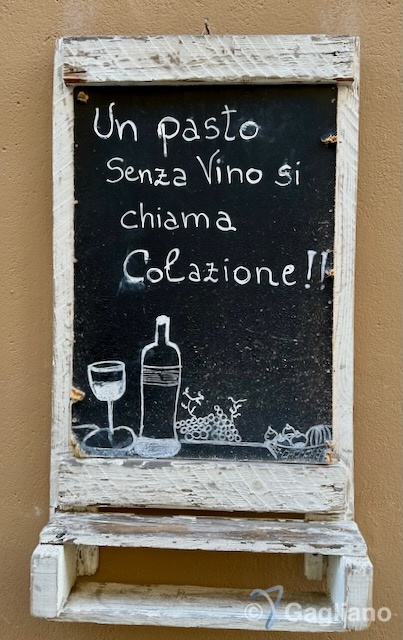 Un pasto
Senza Vino si
chiama
Colazione!!
© Gagliano